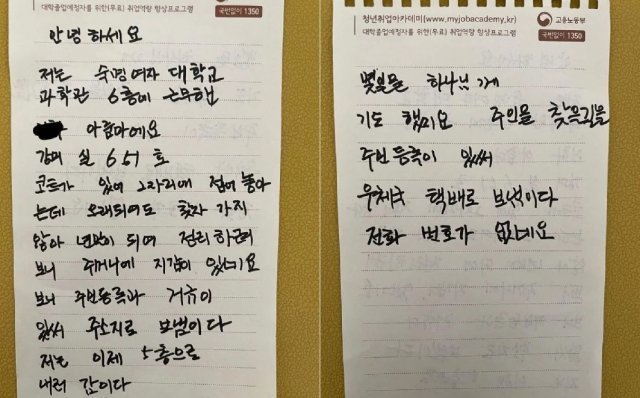 대학졸업예정자를 위한(무료) 취업역량 향상프로그램
국번없이 1350
안녕하세요
저는 숙명여자 대학교
과학관 6층에 근무햇
아줌마에요
강의 실 651 호
코트가 있어 그자리에 접어 놓아
는데 오래되여도 찾자 가지
않아 년말이 되여 정리 하근러
보니 주머니에 지갑이 있네요
보니 주번등록과 거규이
있써 주소지로 보냄이다
저는 이제 5층으로
내려 감이다
청년취업아카데미(www.myjobacademy.kr)
고용노동부
대학졸업예정자를 위한(무료) 취업역량 향상프로그램
국번없이 1350
몇일을 하나님 게
기도 했미요 주인을 찾을길을
주번등록이 있써
우체국 택배로 보냄이다
전화 번호가 없네요